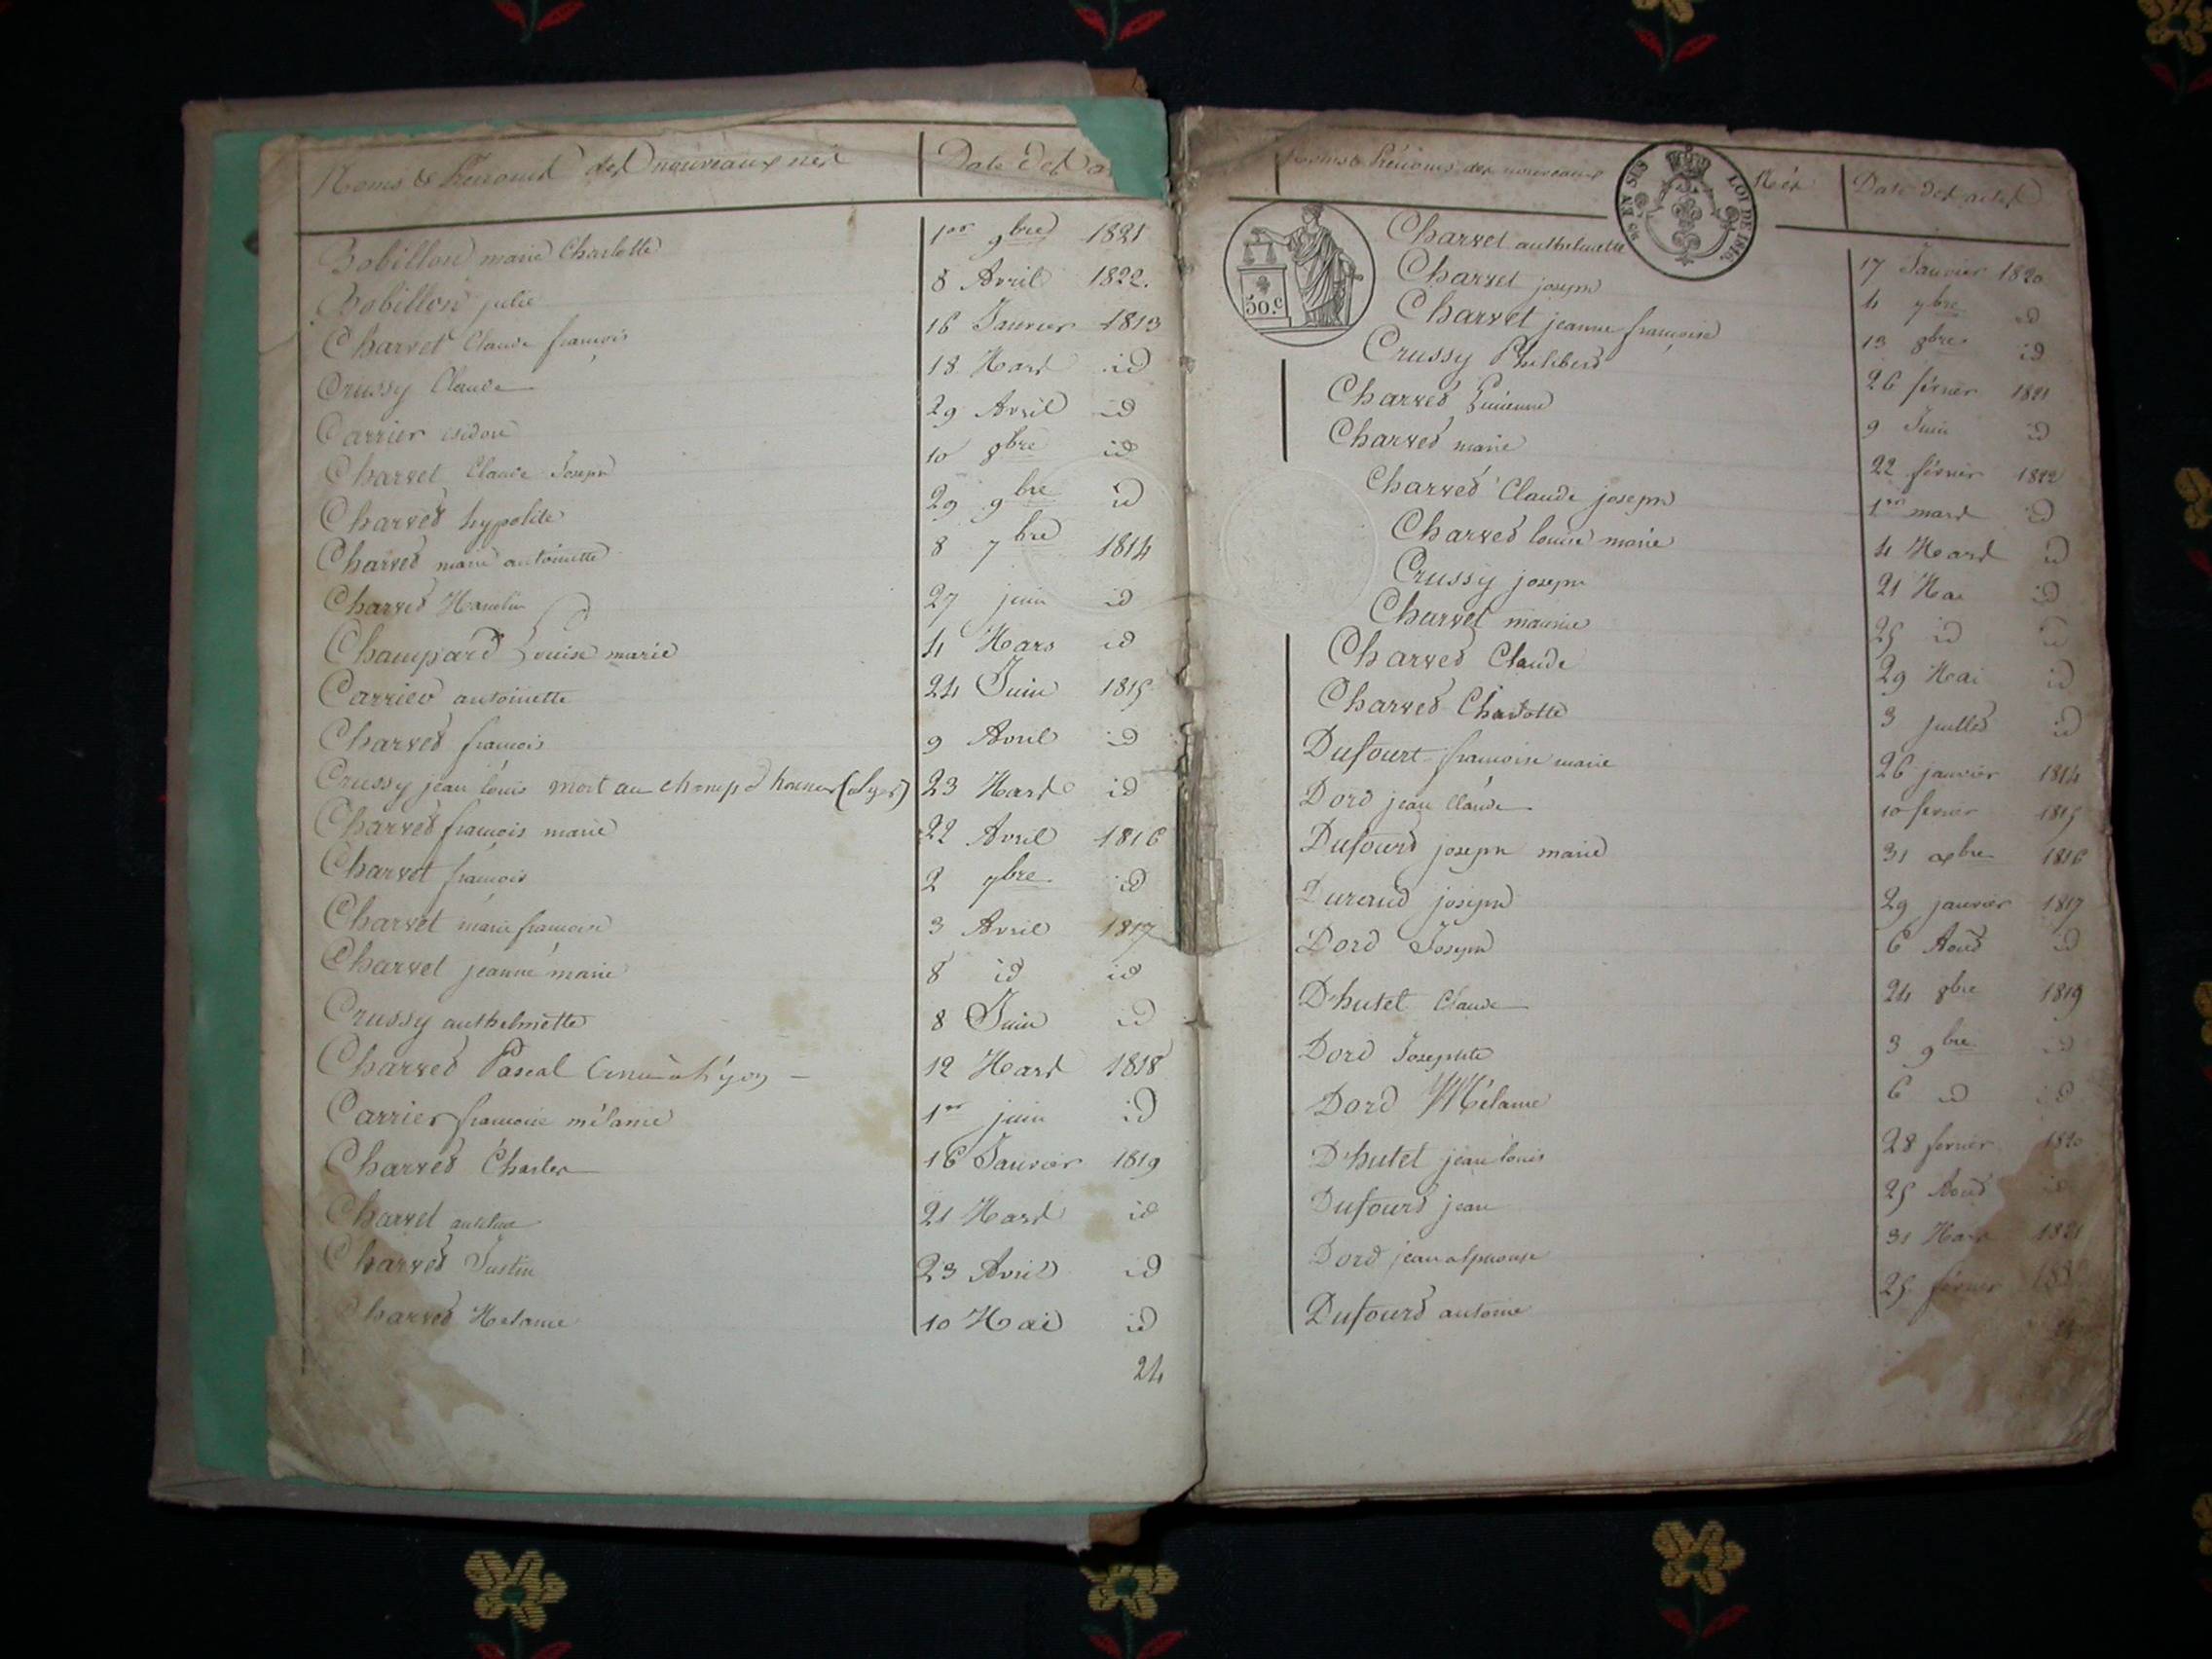 Noms & Prénoms des nouveaux nés Date des a
Bobillon marie Charlotte 1er 9bre 1821
Bobillon julie 8 Avril 1822.
Charvet Claude françois 16 Janvier 1813
Crussy Claude 18 Mars id
Carrier isidore 29 Avril id
Charvet Claude Joseph 10 8bre id
Charvet hypolite 29 9bre id
Charvet marie antoinette 8 7bre 1814
Charvet 27 juin id
Champard Louise marie 4 Mars id
Carrier antoinette 24 Juin 1815
Charvet françois 9 Avril id
Crussy jean louis mort au champ d'honneur (alger) 23 Mars id
Charvet françois marie 22 Avril 1816
Charvet françois 2 7bre id
Charvet marie françoise 3 Avril 1817
Charvet jeanne marie 8 id id
Crussy anthelmette 8 Juin id
Charvet Pascal 12 Mars 1818
Carrier françoise mélanie 1er juin id
Charvet Charles 16 Janvier 1819
Charvet 21 Mars id
Charvet Justin 23 Avril id
Charvet Melanie 10 Mai id
24
Noms & Prénoms des nouveaux Nés Date des actes
EN SUS LOI DE 1816.
50.c
Charvet anthelmette 17 Janvier 1820
Charvet joseph 4 7bre id
Charvet jeanne françoise 13 8bre id
Crussy Philibert 26 février 1821
Charvet 9 Juin id
Charvet marie 22 février 1822
Charvet Claude joseph 1er mars id
Charvet louise marie 4 Mars id
Crussy joseph 21 Mai id
Charvet maurice 25 id id
Charvet Claude 29 Mai id
Charvet Charlotte 3 juillet id
Dufourt françoise marie 26 janvier 1814
Dord jean Claude 10 fevrier 1815
Dufourd joseph marie 31 xbre 1816
Durand joseph 29 janvier 1817
Dord Joseph 6 Aout id
D'hutet Claude 24 8bre 1819
Dord Josephte 3 9bre id
Dord Mélanie 6 id id
D'hutet jean louis 28 fevrier 1820
Dufourd jean 25 Aout id
Dord jean alphonse 31 Mars 1821
Dufourd antoine 25 février